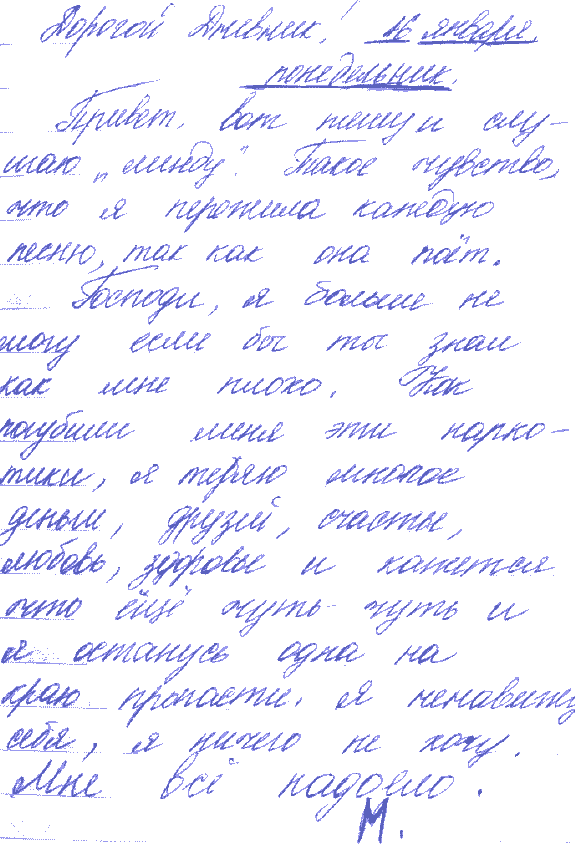 Дорогой Дневник! 16 января,
понедельник.
Привет. Вот пишу и слу-
шаю „Линду". Такое чувство,
что я пережила каждую
песню, так как она поёт.
Господи, я больше не
могу если бы ты знал
как мне плохо. Как
погубили меня эти нарко-
тики, я теряю многое
деньги, друзей, счастье,
любовь, здоровье и кажется
что ёщё чуть-чуть и
я останусь одна на
краю пропасти. Я ненавижу
себя, я ничего не хочу.
Мне всё надоело.
М.